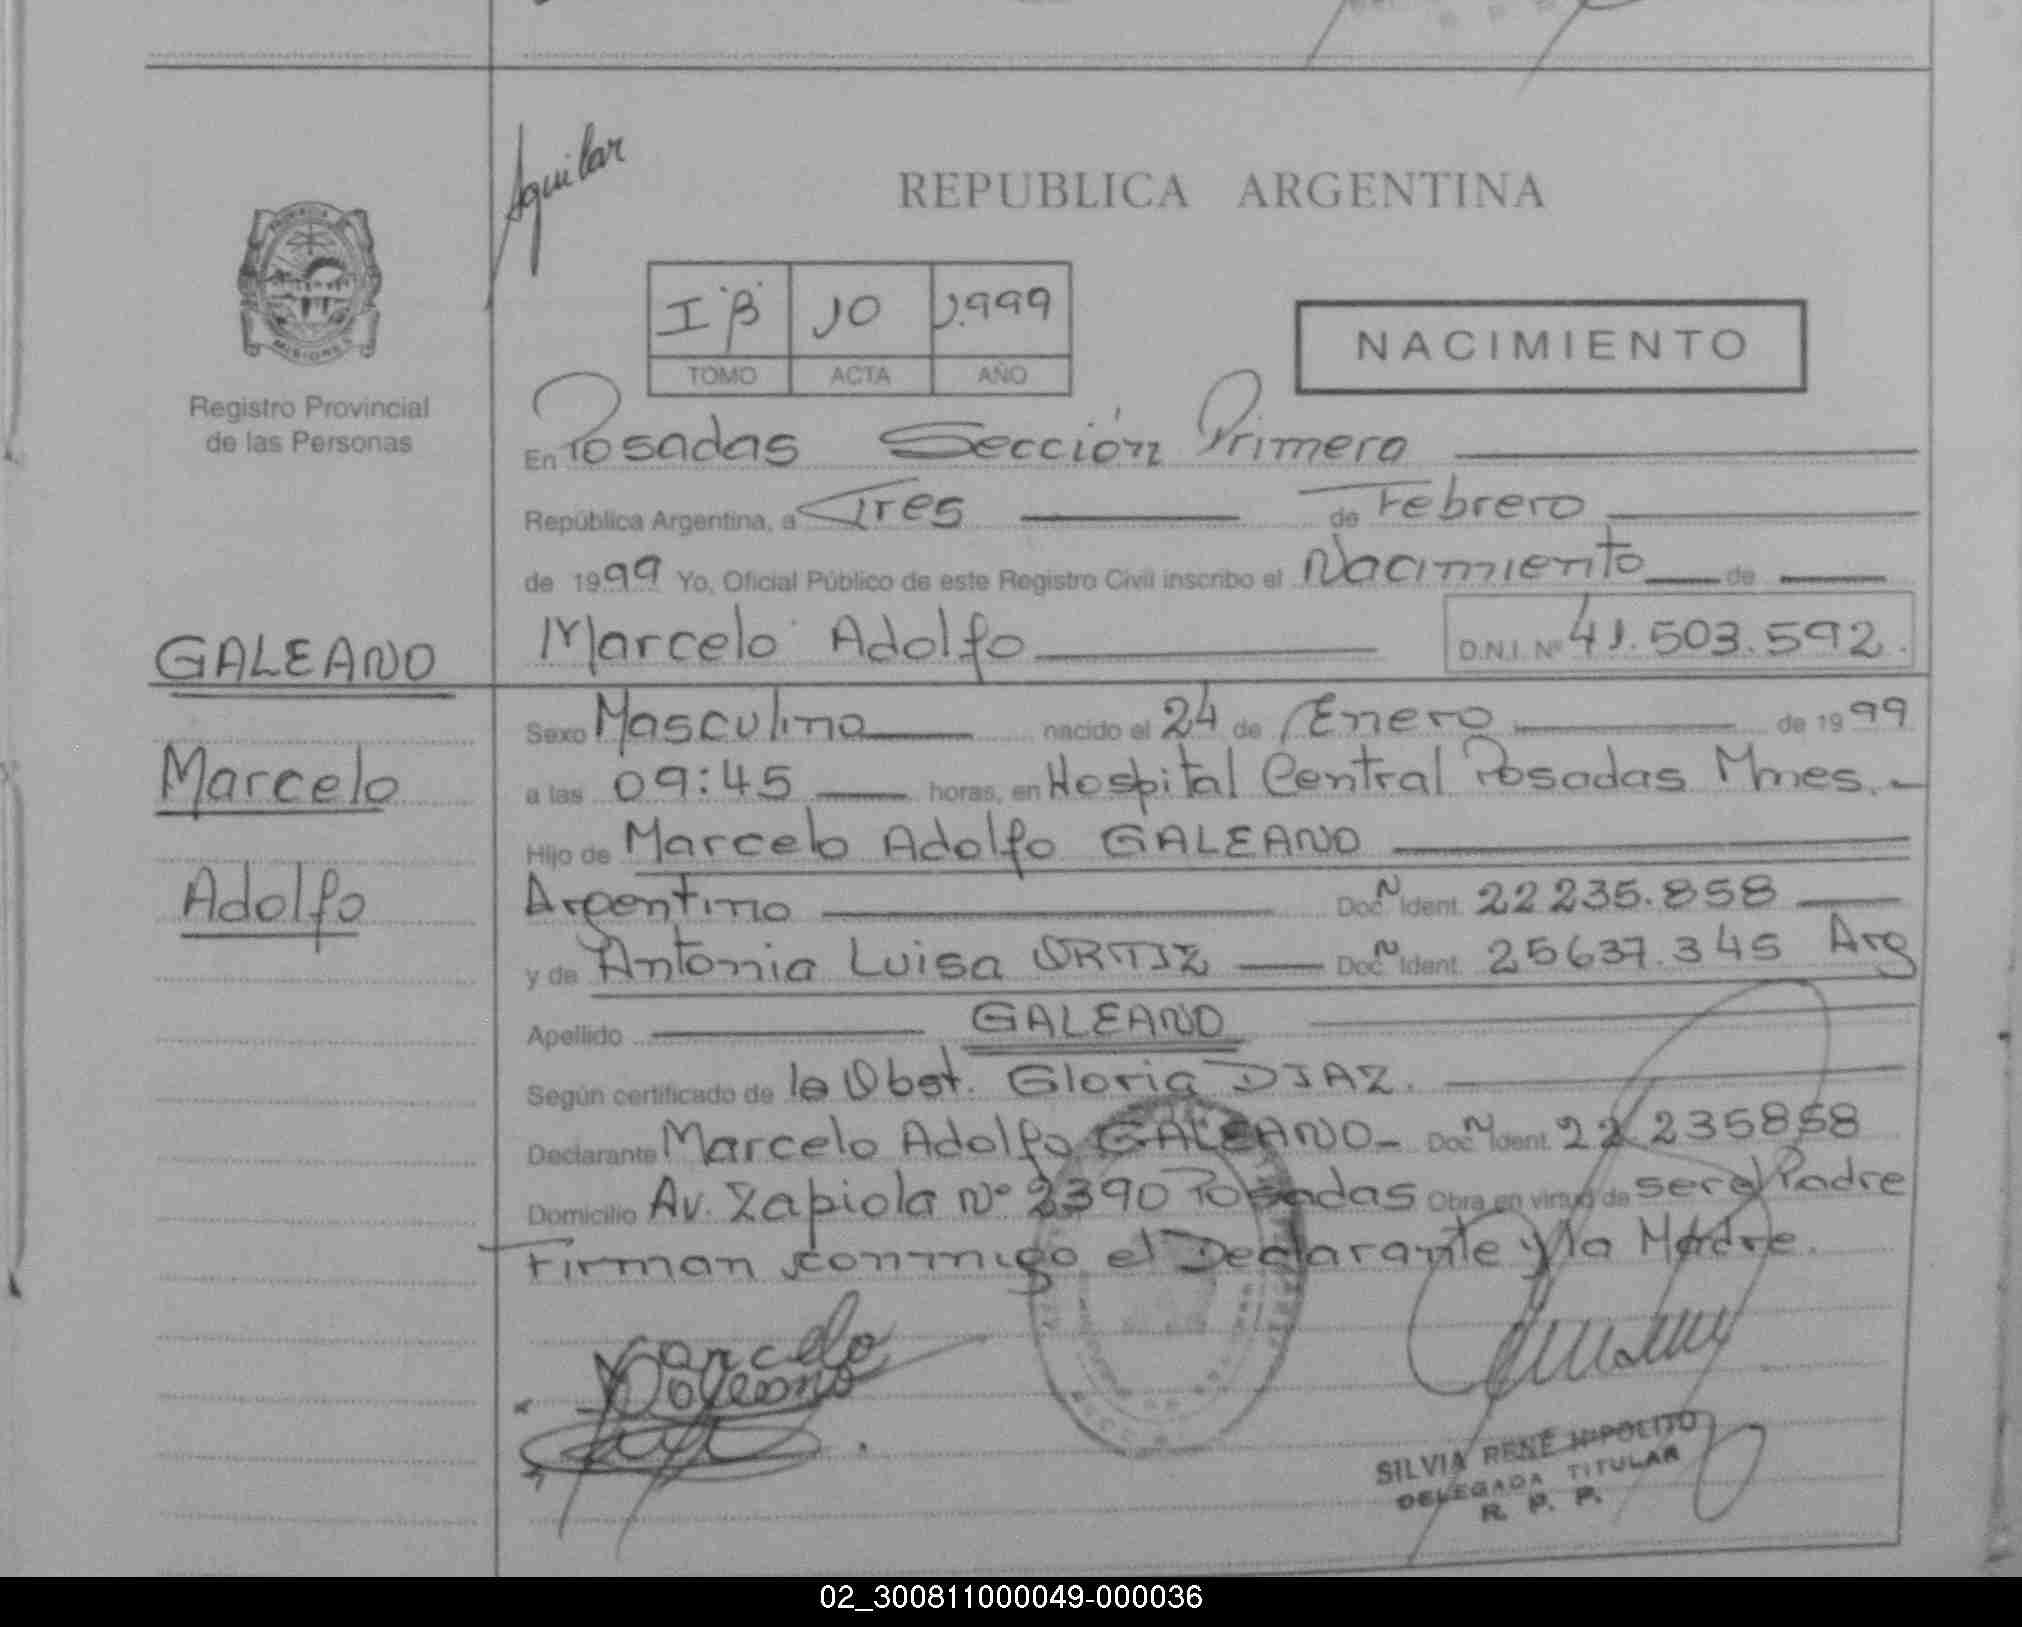 Aguilar
REPUBLICA ARGENTINA
MISIONES
I "B" 10 1.999
TOMO ACTA AÑO
NACIMIENTO
Registro Provincial
de las Personas
En Posadas Sección Primera
República Argentina, a Tres de Febrero
de 1999 Yo, Oficial Público de este Registro Civil inscribo el Nacimiento de
GALEANO
Marcelo Adolfo D.N.I. Nº 41.503.592.
Sexo Masculino nacido el 24 de Enero de 1999
Marcelo
a las 09:45 horas, en Hospital Central Posadas Mnes.
Hijo de Marcelo Adolfo GALEANO
Adolfo
Argentino Doc. N Ident. 22 235.858
y de Antonia Luisa ORTIZ Doc. N Ident. 25637.345 Arg
Apellido GALEANO
Según certificado de la Obst. Gloria DIAZ.
Declarante Marcelo Adolfo GALEANO Doc. N Ident. 22 235858
Domicilio Av. Zapiola Nº 2390 Posadas Obra en virtud de ser el Padre
Firman conmigo el Declarante y la Madre.
Marcelo
Galeano
SILVIA RENÉ HIPOLITO
DELEGADA TITULAR
R. P. P.
02_300811000049-000036